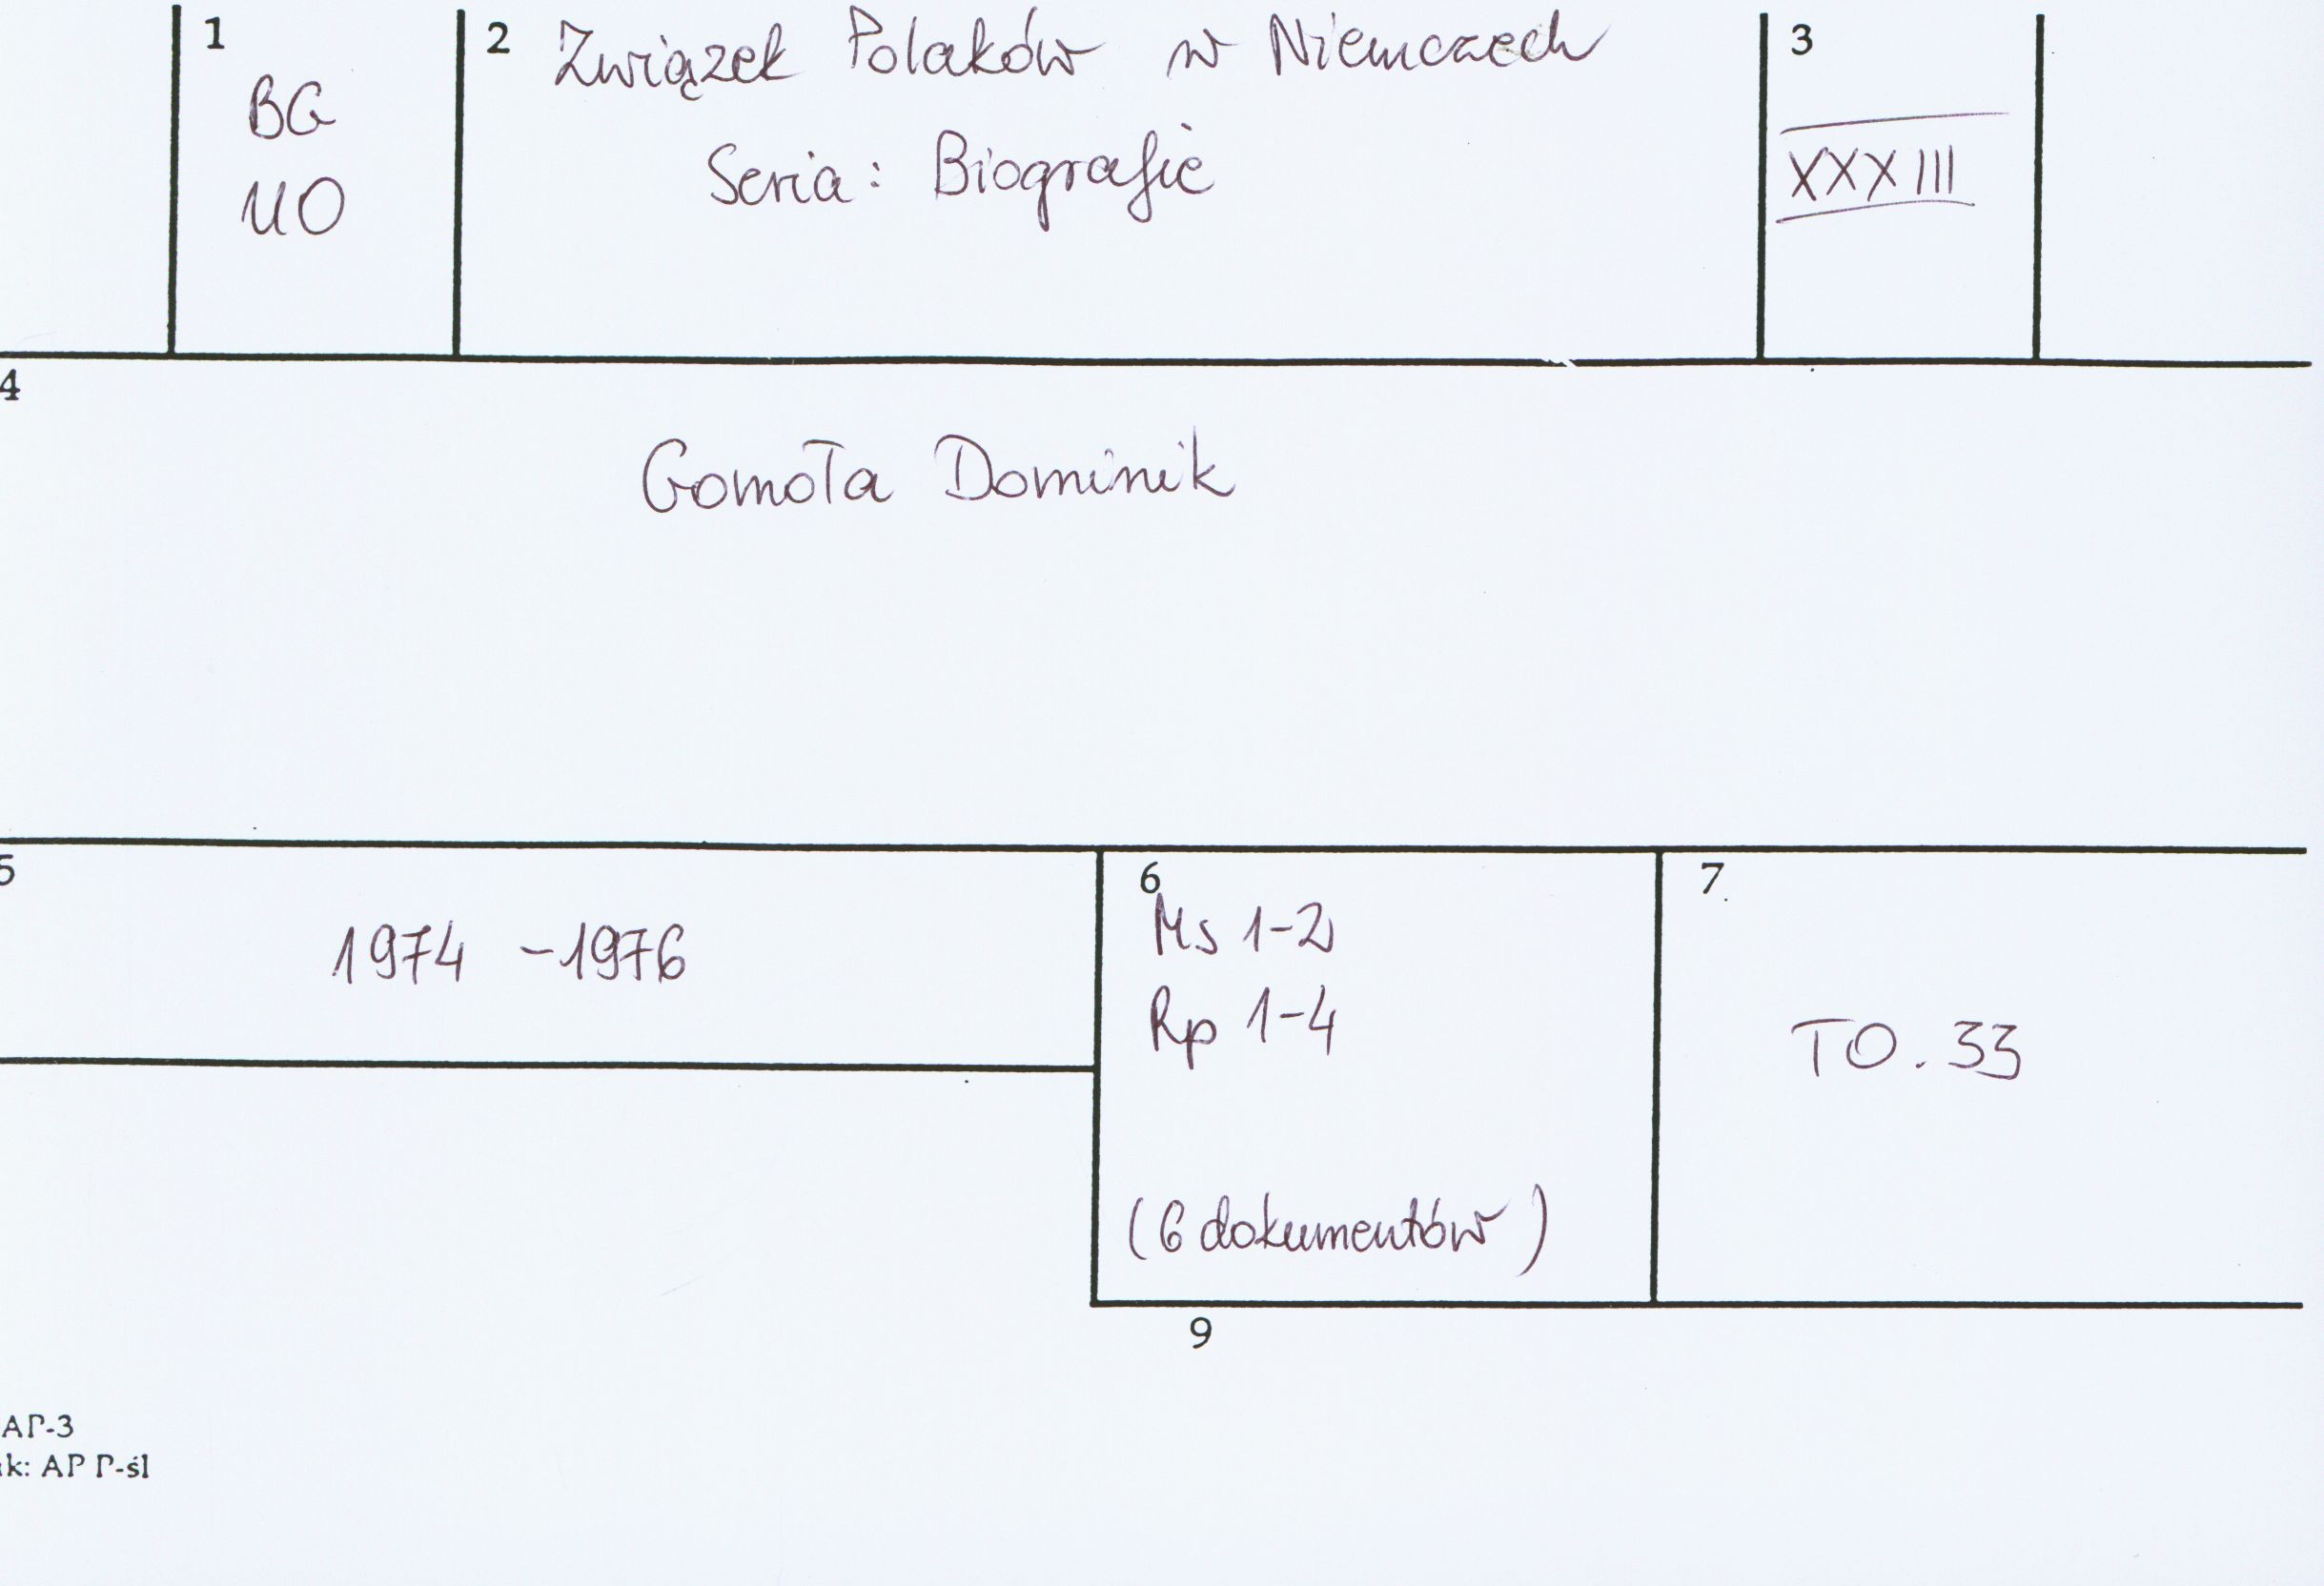 1
BG
UO
2 Związek Polaków w Niemczech
Seria: Biografie
3
XXXIII
4
Gomoła Dominik
5
1974 - 1976
6
Ms 1-2
Rp 1-4
(6 dokumentów)
7
TO. 33
9
AP-3
k: AP P-śl